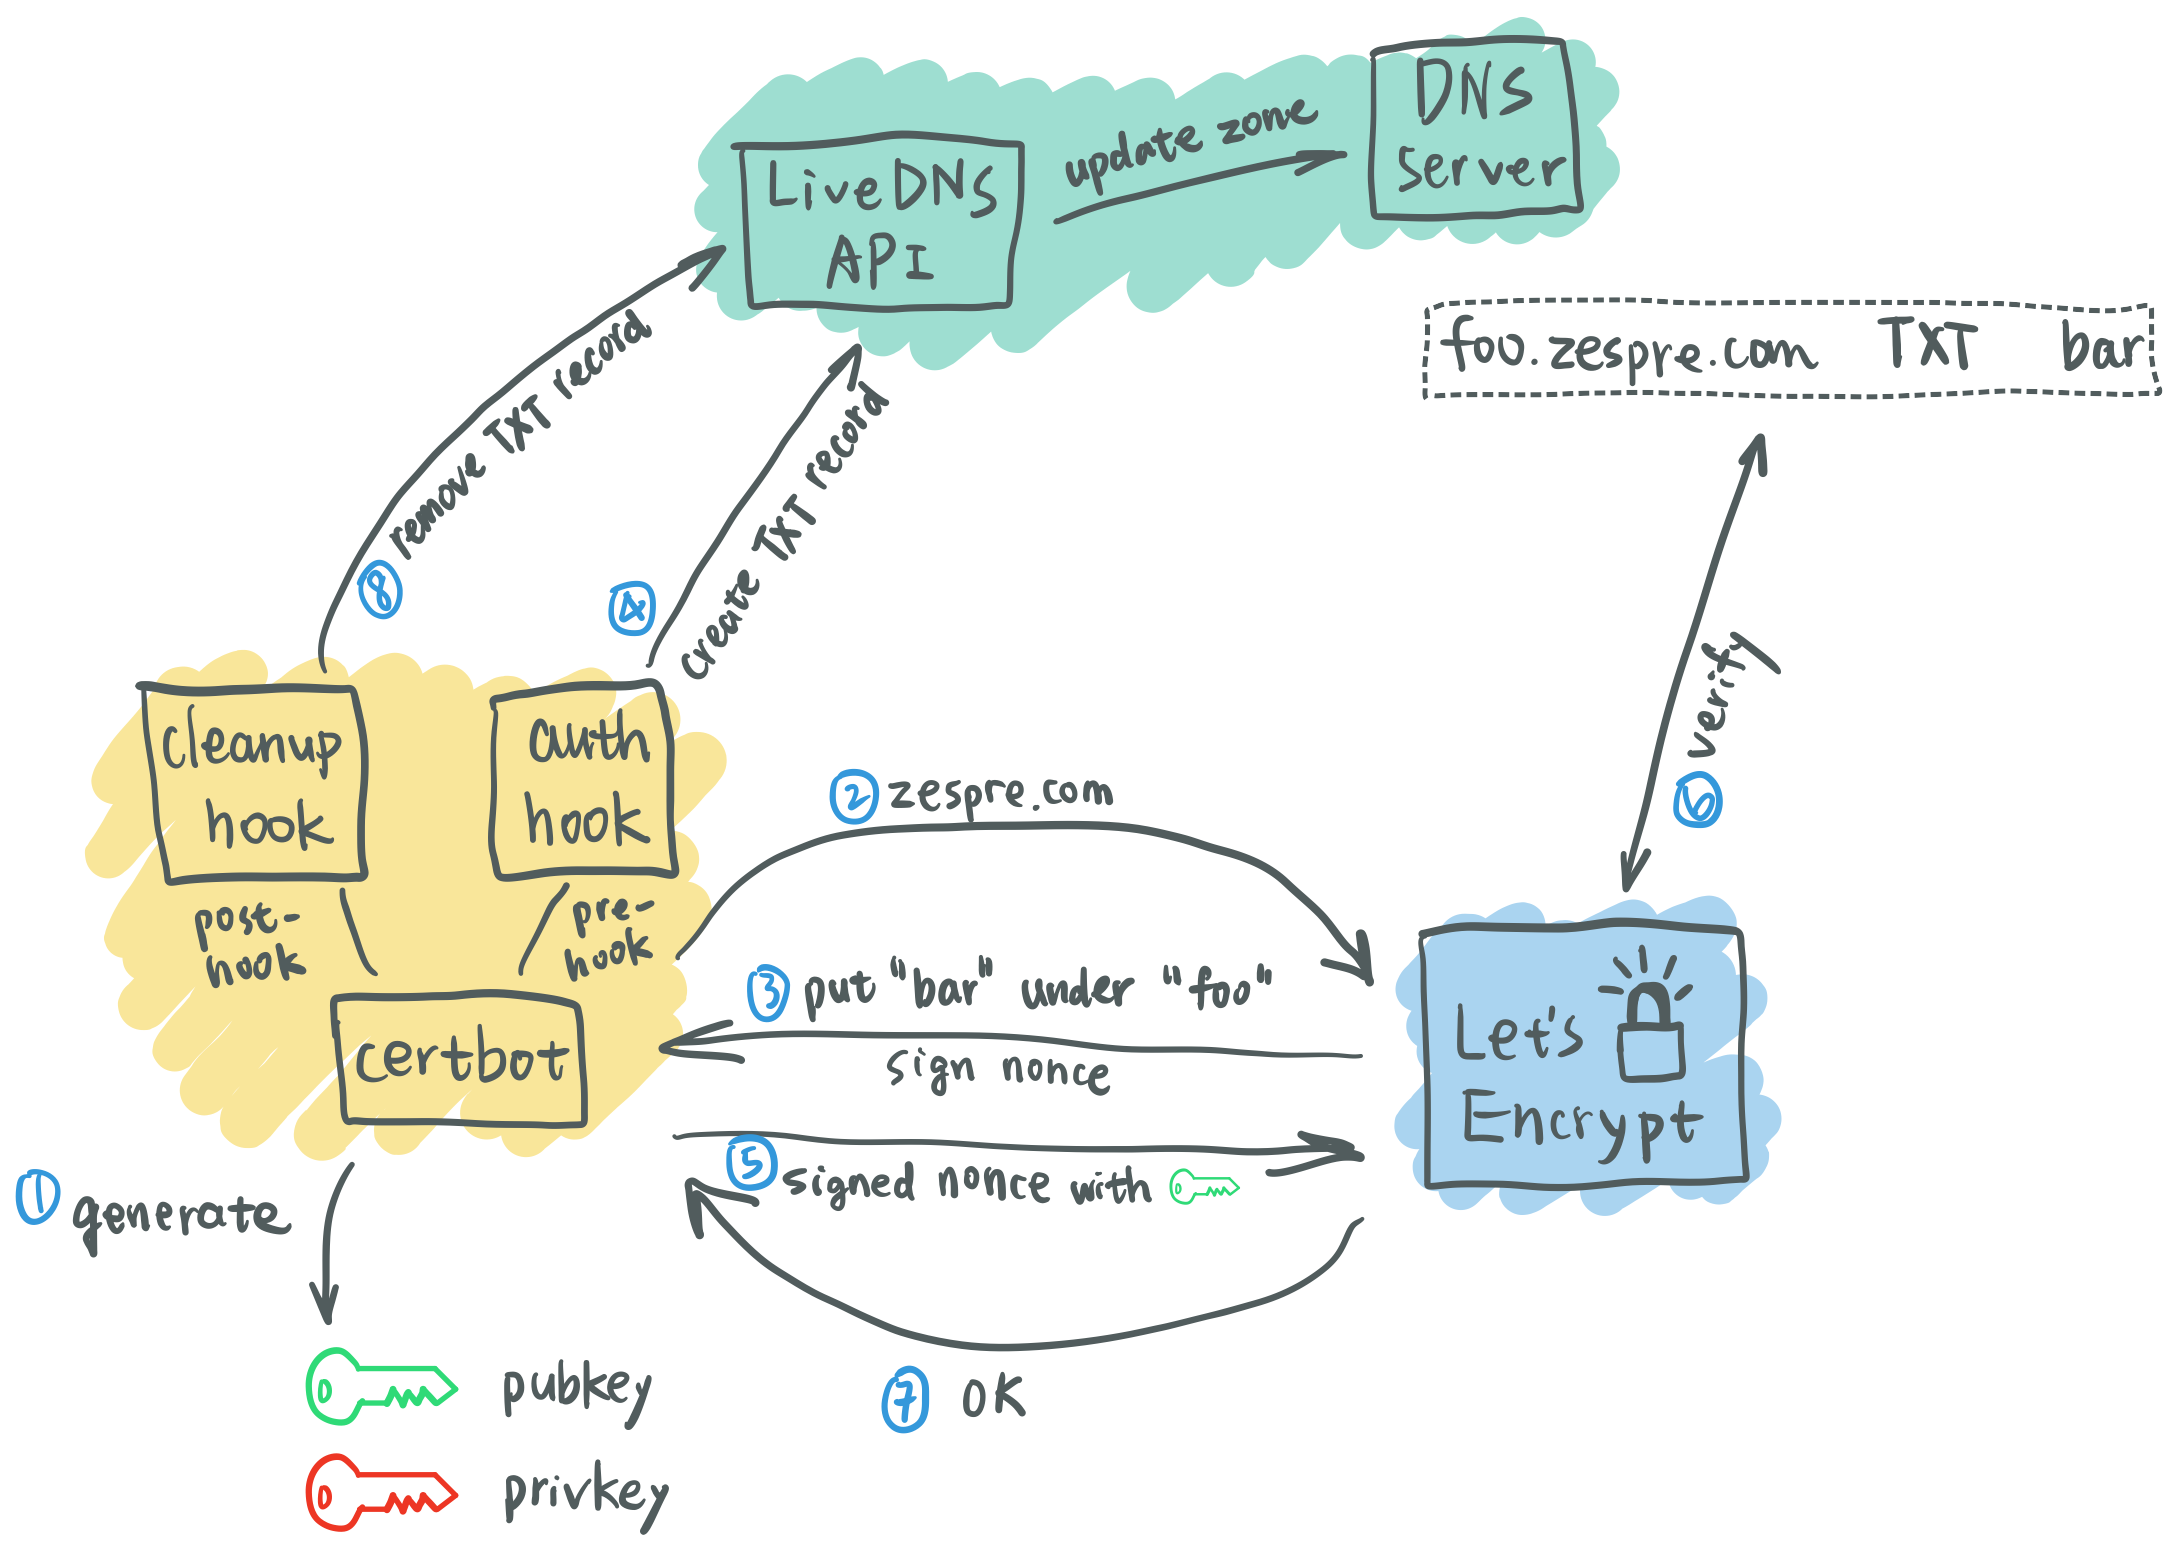 LiveDNS
API
update zone
DNS
server
foo.zespre.com TXT bar
⑧ remove TXT record
④ create TXT record
⑥ verify
cleanup
hook
auth
hook
post-
hook
pre-
hook
certbot
② zespre.com
③ put "bar" under "foo"
sign nonce
⑤ signed nonce with
⑦ OK
Let's
Encrypt
① generate
pubkey
privkey